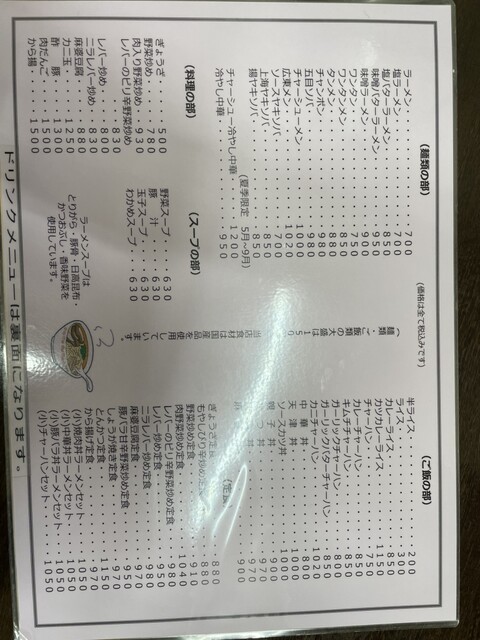 (麺類の部)
ラーメン・・・・・700
塩ラーメン・・・・・700
塩バターラーメン・・・・・850
味噌バターラーメン・・・・・950
味噌ラーメン・・・・・850
ワンタン・・・・・750
ワンタンメン・・・・・850
タンメン・・・・・850
チャンポン・・・・・900
五目ソバ・・・・・980
チャーシューメン・・・・・1000
広東メン・・・・・1020
ソースヤキソバ・・・・・700
上海ヤキソバ・・・・・850
揚ヤキソバ・・・・・850
(夏季限定 5月~9月)
チャーシュー冷やし中華・・1200
冷やし中華・・・・・950
(料理の部)
ぎょうざ・・・・・500
野菜炒め・・・・・780
肉入り野菜炒め・・・930
レバーのピリ辛野菜炒め・・900
レバー炒め・・・・・800
ニラレバー炒め・・・830
麻婆豆腐・・・・・880
カニ玉・・・・・1250
酢豚・・・・・1050
肉だんご・・・・・1500
から揚・・・・・1500
(スープの部)
野菜スープ・・・630
豚汁・・・・・630
玉子スープ・・・630
わかめスープ・・・630
ラーメンスープは
とりがら・豚骨・日高昆布・
かつおぶし・香味野菜を
使用しています。
(価格は全て税込みです)
(麺類・ご飯類の大盛は150
当店食材は国産品を使用しています。
(ご飯の部)
半ライス・・・・・200
ライス・・・・・300
カレーライス・・・・・850
カツカレーライス・・・・・1150
チャーハン・・・・・750
カレーチャーハン・・・・・850
キムチチャーハン・・・・・850
ガーリックチャーハン・・・・・800
ガーリックバターチャーハン・・850
カニチャーハン・・・・・1020
中華丼・・・・・900
天津丼・・・・・1000
ソースカツ丼・・・・・1000
親子丼・・・・・900
つ丼・・・・・970
900
(定食
ぎょうざ定・・・・880
もやしピリ辛炒め定・・・880
野菜炒め定食・・・・・910
肉野菜炒め定食・・・・・1040
レバーのピリ辛野菜炒め定食・・980
レバー炒め定食・・・・・950
ニラレバー炒め定食・・・・・980
麻婆豆腐定食・・・・・950
豚バラ甘辛野菜炒め定食・・・970
しょうが焼き定食・・・・・970
とんかつ定食・・・・・1150
から揚げ定食・・・・・970
(小)焼肉丼ラーメンセット・・1050
(小)中華丼ラーメンセット・・1050
(小)豚バラ丼ラーメンセット・・1050
(小)チャーハンセット・・・1050
ドリンクメニューは裏面になります。